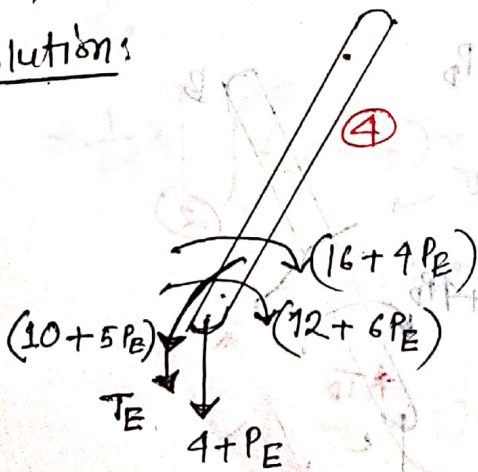 lution:
4
(16 + 4PE)
(10 + 5PE)
(12 + 6PE)
TE
4 + PE